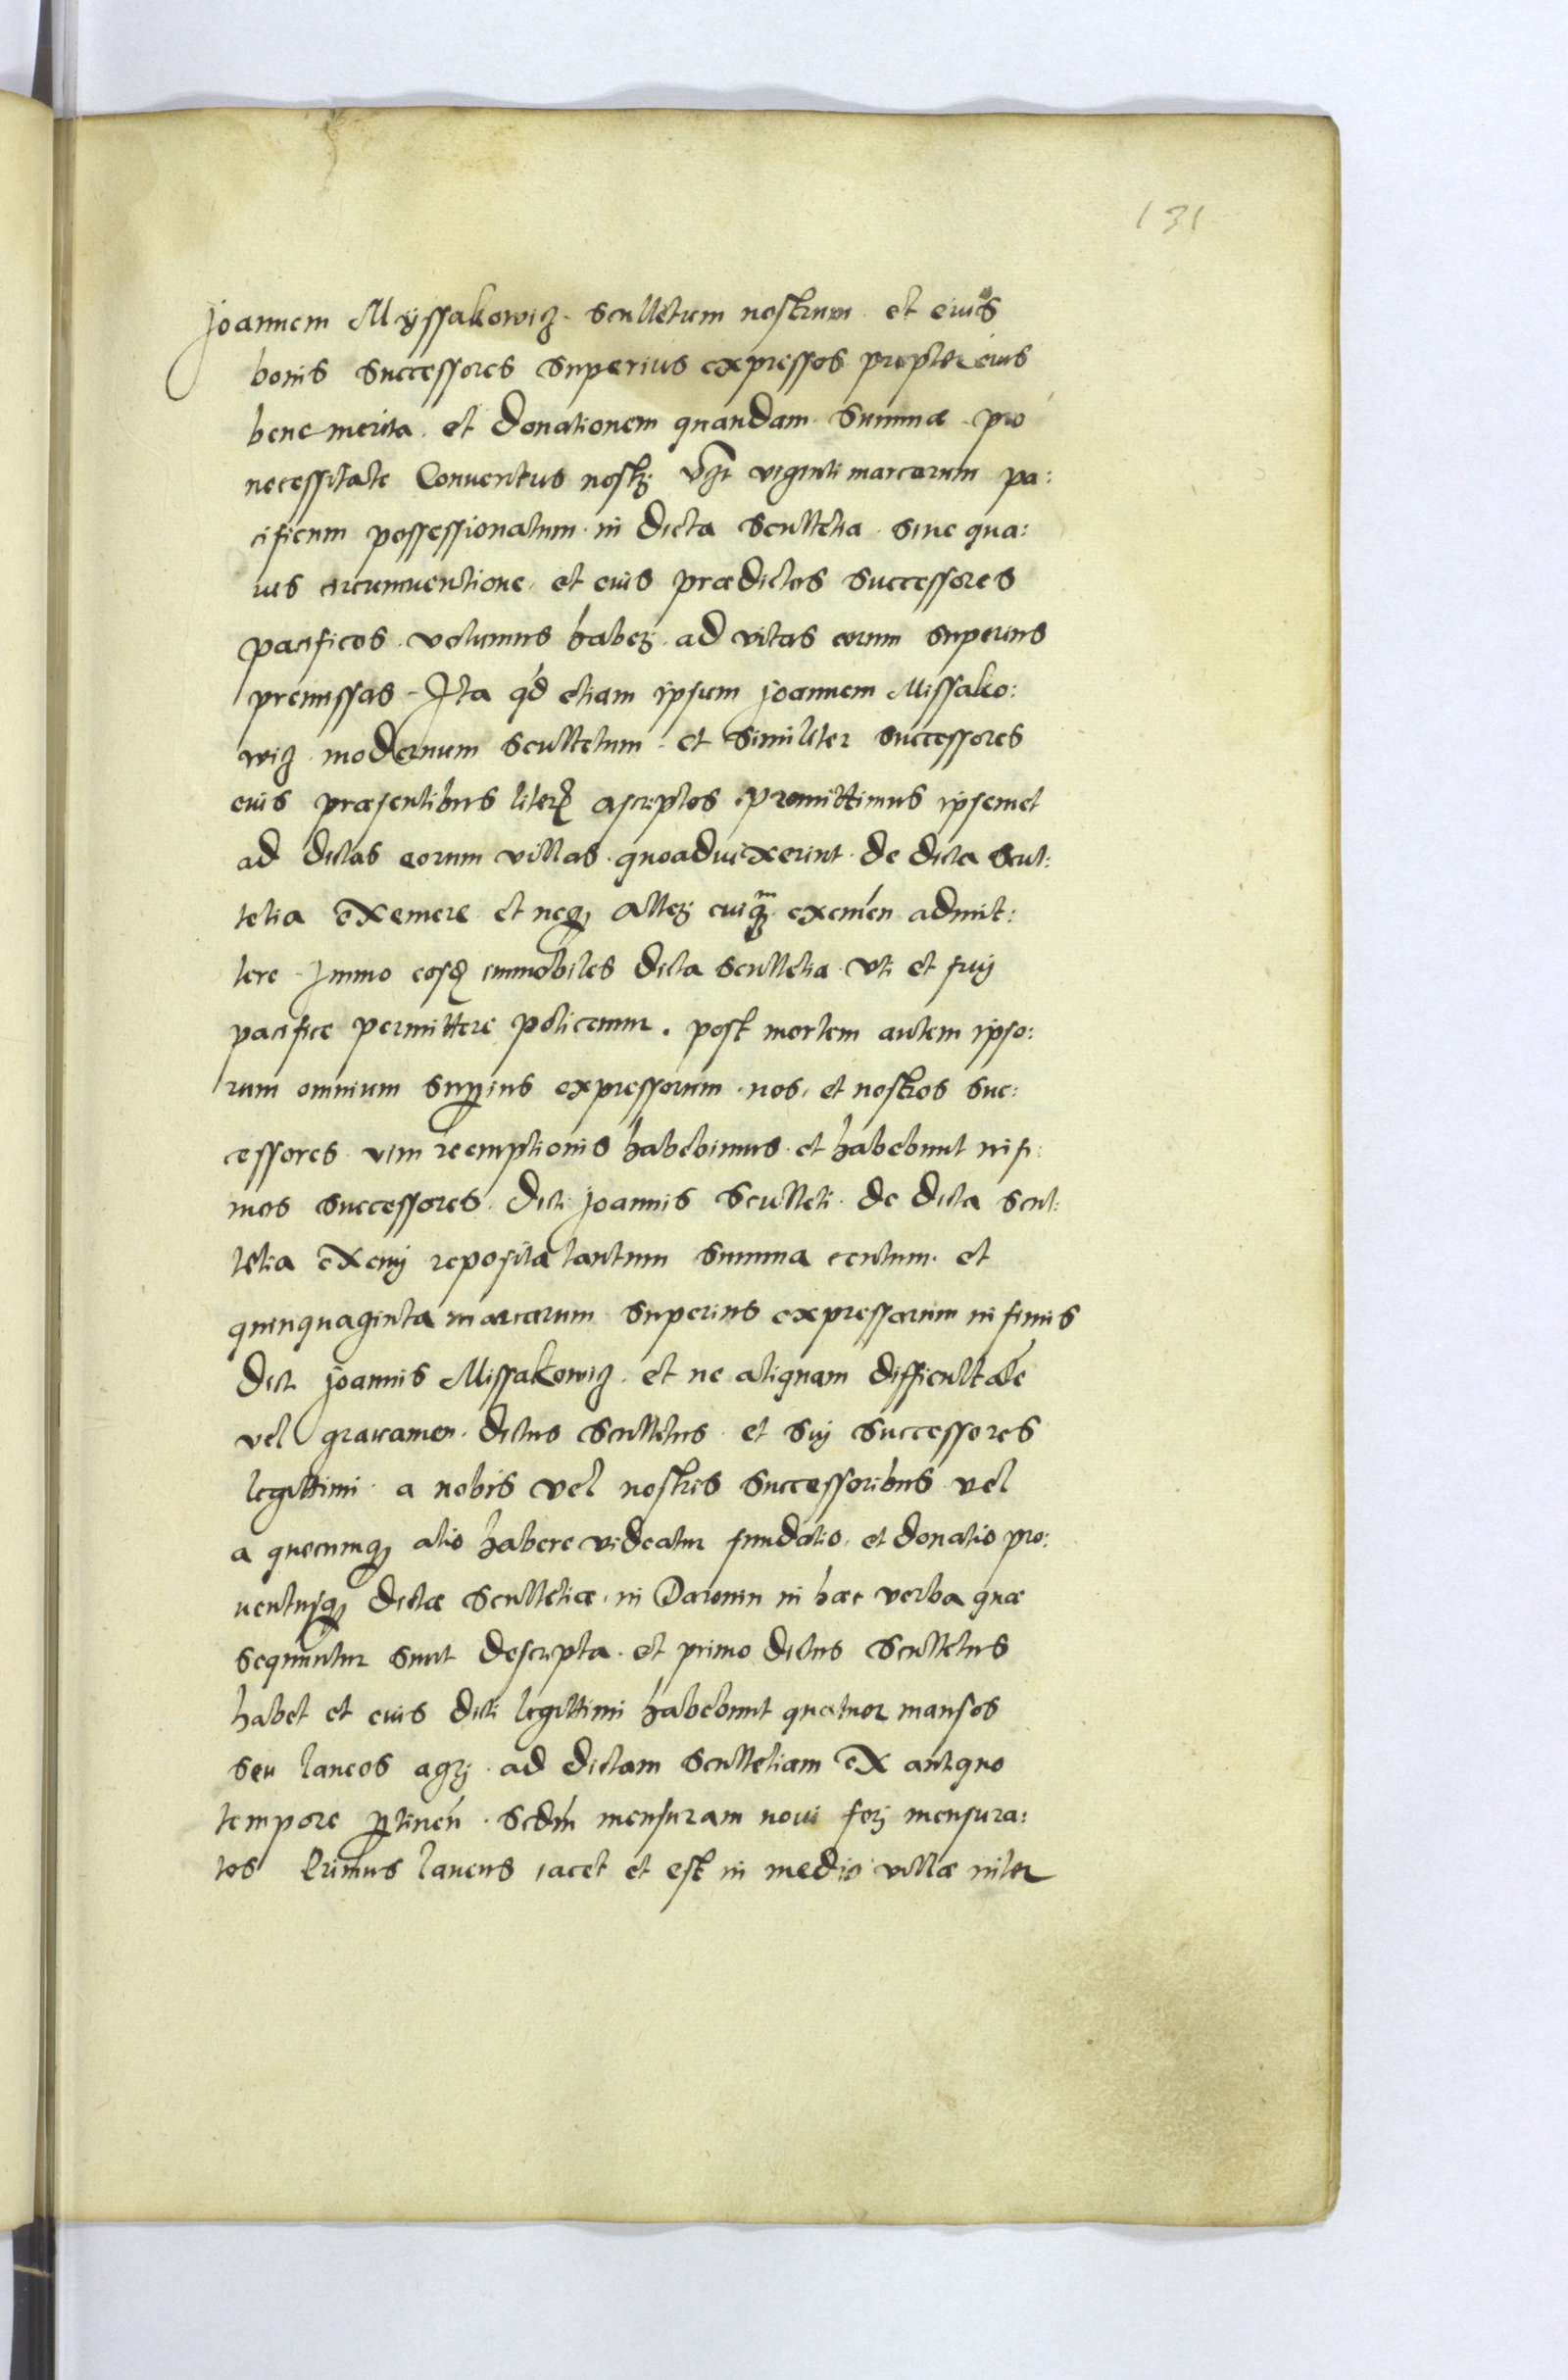 131
Joannem Myssakowig. Scultetum nostrum et eius
bonis successores superius expressos propter eius
bene merita. et donationem quandam summæ pro
necessitate Conventus nostrj viginti marcarum pa:
cificum possessionatum in dicta Scultetia sine qua:
uis circumventione. et eius prædictos successores
pacificos. volumus haberj. ad vitas eorum superius
premissas. Ita qd etiam ipsum Joannem Missako:
wig modernum Scultetum et similiter successores
eius præsentibus liter ascriptos promittimus ipsemet
ad dictas eorum villas. quoaduixerint de dicta Scul:
tetia exemere et neq alterj cuiq exemen admit:
tere. Immo eosd immobiles dicta scultetia vti et fruj
pacifice permittere policemur. post mortem autem ipso:
rum omnium superius expressorum nos. et nostros suc:
cessores vim reemptionis habebimus et habebunt infi:
mos successores. dicti Joannis Sculteti de dicta Scul:
tetia eximj reposita tantum summa centum et
quinquaginta marcarum superius expressarum in finus
dicti Joannis Missakowig. et ne aliquam difficultate
vel grauamen. dictus Scultetus et suj successores
legittimi a nobis vel nostris successoribus vel
a quocumq alio habere videatur fundatio et donatio pro:
uentusq dictæ Scultetiæ in Daronin in hæc verba quæ
sequuntur sunt descripta. et primo dictus Scultetus
habet et eius dicti legittimi habebunt quatuor mansos
seu laneos agrj ad dictam Scultetiam ex antiquo
tempore ptinen. Scdm mensuram noui forj mensura:
tos Primus laneus iacet et est in medio villæ inter